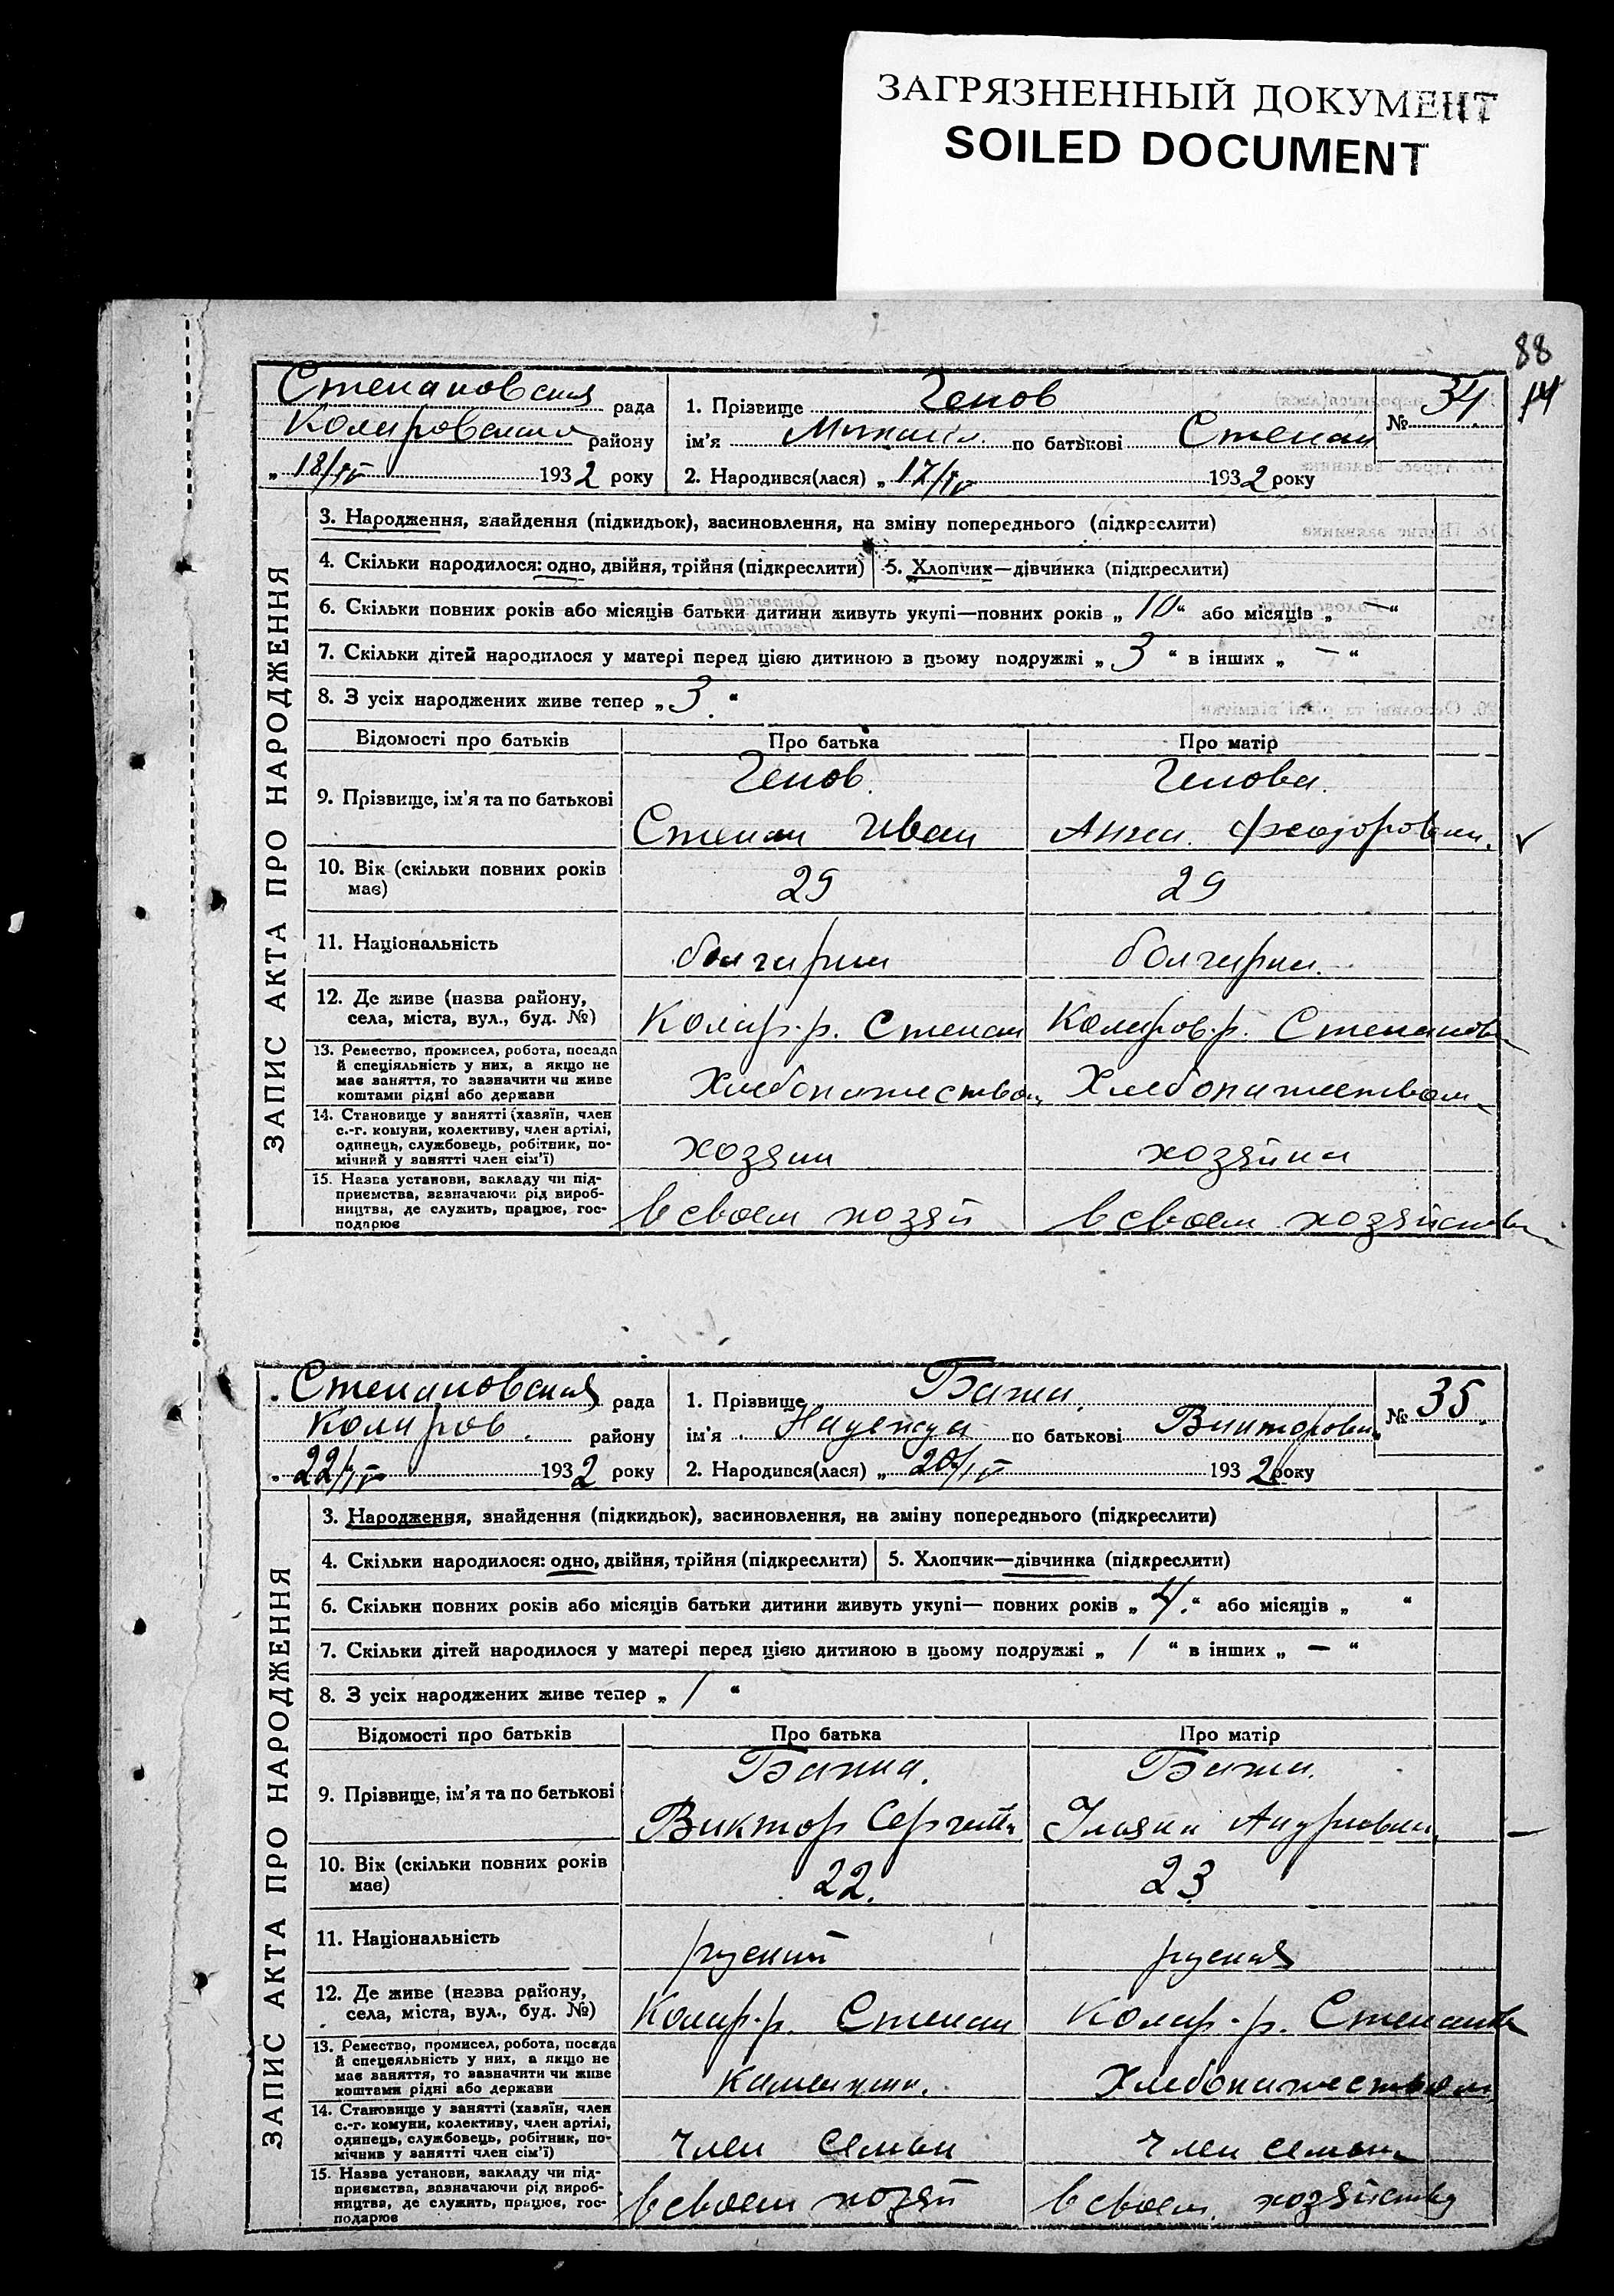 ЗАГРЯЗНЕННЫЙ ДОКУМЕНТ
SOILED DOCUMENT
88
14
Степановская рада
Коларовского району
„ 18/IV 1932 року
1. Прізвище Генов
ім'я Михаил по батькові Степан
2. Народився(лася) „ 17/IV 1932 року
№ 34.
ЗАПИС АКТА ПРО НАРОДЖЕННЯ
3. Народження, знайдення (підкидьок), засиновлення, на зміну попереднього (підкреслити)
4. Скільки народилося: одно, двійня, трійня (підкреслити)
5. Хлопчик—дівчинка (підкреслити)
6. Скільки повних років або місяців батьки дитини живуть укупі—повних років „ 10 “ або місяців „ — “
7. Скільки дітей народилося у матері перед цією дитиною в цьому подружжі „ 3 “ в інших „ — “
8. З усіх народжених живе тепер „ 3. “
Відомості про батьків Про батька Про матір
9. Прізвище, ім'я та по батькові
Генов. Генова.
Степан Иван Анна Феодоровн.
10. Вік (скільки повних років
має)
29 29
11. Національність
болгарин болгарка.
12. Де живе (назва району,
села, міста, вул., буд. №)
Колар.р. Степан Коларов.р. Степановк
13. Ремество, промисел, робота, посада
й спеціяльність у них, а якщо не
має заняття, то зазначити чи живе
коштами рідні або держави
Хлебопашеством Хлебопашеством
14. Становище у занятті (хазяїн, член
с.-г. комуни, колективу, член артілі,
одинець, службовець, робітник, по-
мічний у занятті член сім'ї)
хозяин хозяйка
15. Назва установи, закладу чи під-
приємства, зазначаючи рід вироб-
ництва, де служить, працює, гос-
подарює
в своем хозяй в своем хозяйстве
Степановская рада
Коларов. району
„ 22/IV 1932 року
1. Прізвище
ім'я Надежда по батькові Викторовн.
2. Народився(лася) „ 20/IV 1932 року
№ 35.
ЗАПИС АКТА ПРО НАРОДЖЕННЯ
3. Народження, знайдення (підкидьок), засиновлення, на зміну попереднього (підкреслити)
4. Скільки народилося: одно, двійня, трійня (підкреслити)
5. Хлопчик—дівчинка (підкреслити)
6. Скільки повних років або місяців батьки дитини живуть укупі— повних років „ 4. “ або місяців „ “
7. Скільки дітей народилося у матері перед цією дитиною в цьому подружжі „ 1 “ в інших „ — “
8. З усіх народжених живе тепер „ 1 “
Відомості про батьків Про батька Про матір
9. Прізвище, ім'я та по батькові
Виктор Сергей
10. Вік (скільки повних років
має)
22. 23
11. Національність
руский руская
12. Де живе (назва району,
села, міста, вул., буд. №)
Колар.р. Степан Колар.р. Степановк
13. Ремество, промисел, робота, посада
й спецеяльність у них, а якщо не
має заняття, то зазначити чи живе
коштами рідні або держави
Хлебопашеством
14. Становище у занятті (хазяїн, член
с.-г. комуни, колективу, член артілі,
одинець, службовець, робітник, по-
мічнив у занятті член сім'ї)
член семьи член семьи
15. Назва установи, закладу чи під-
приємства, зазначаючи рід вироб-
ництва, де служить, працює, гос-
подарює
в своем хозяй в своем. хозяйству